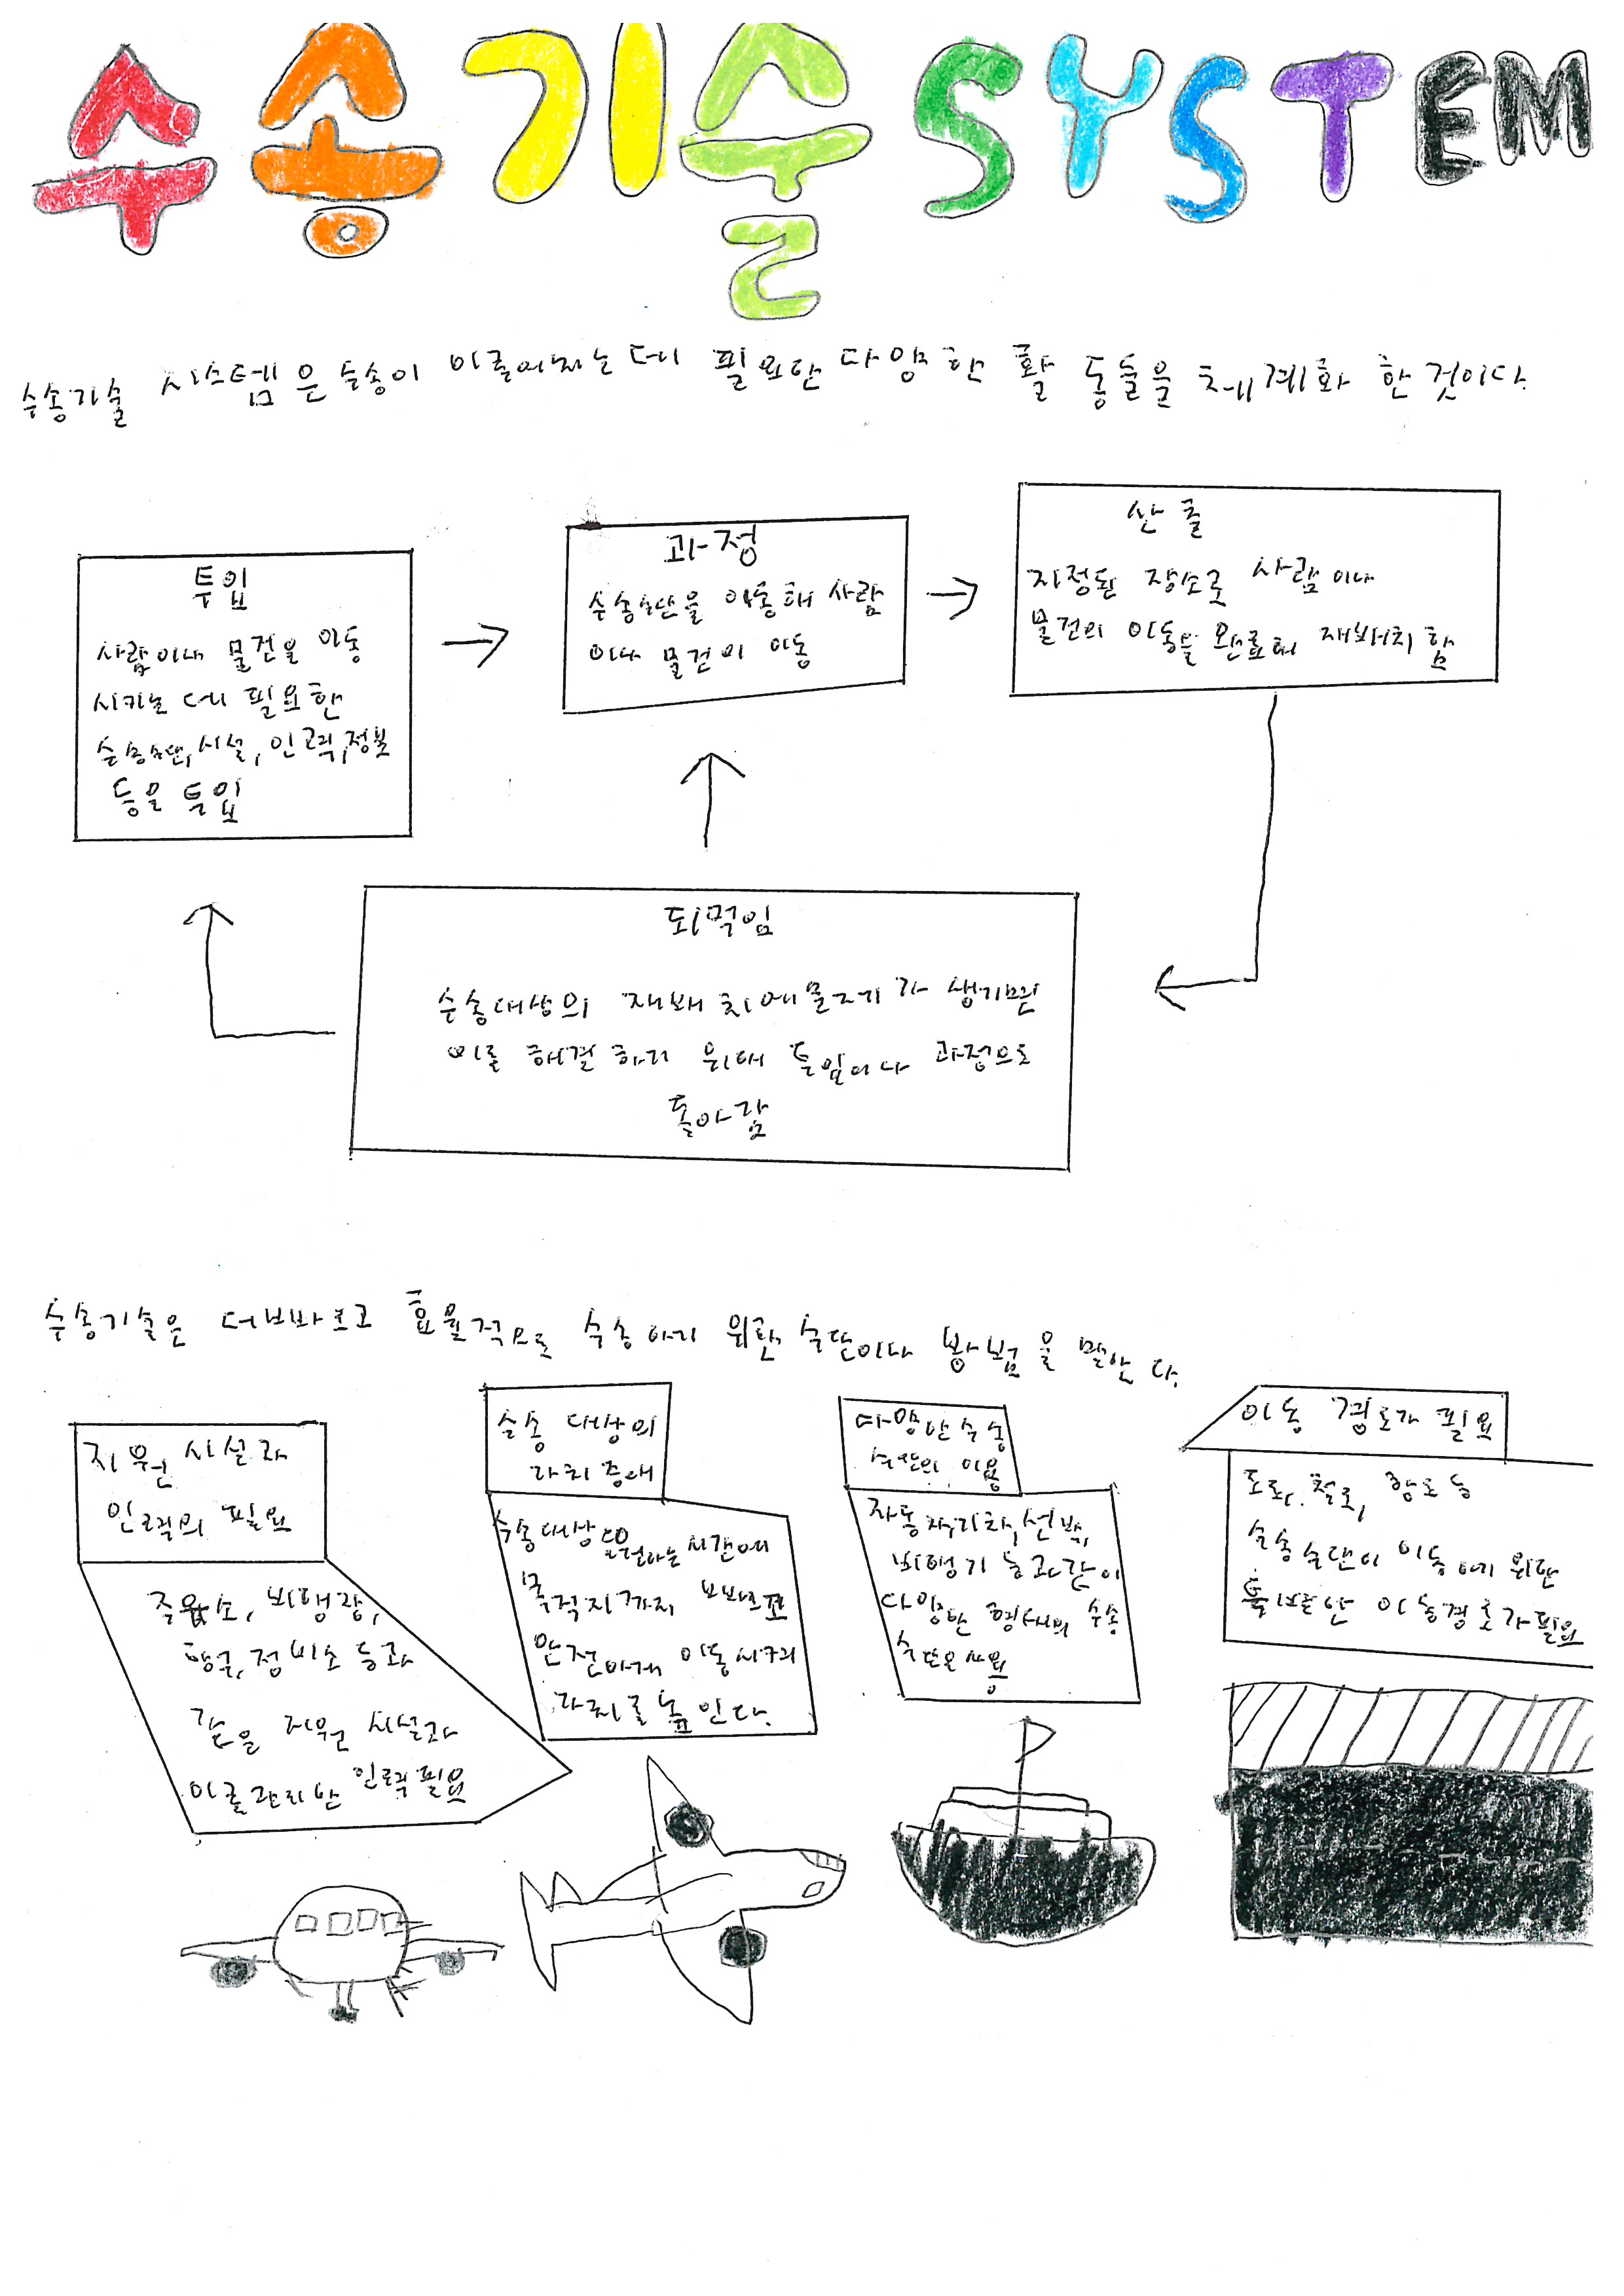 수송기술 SYSTEM
수송기술 시스템은 수송이 이루어지는데 필요한 다양한 활동들을 체계화 한 것이다.
투입
사람이나 물건을 이동
시키는 데 필요한
수송수단, 시설, 인력, 정보
등을 투입
과정
수송수단을 이용해 사람
이나 물건이 이동
산출
지정된 장소로 사람이나
물건의 이동을 완료해 재배치 함
되먹임
수송대상의 재배치에 문제가 생기면
이를 해결하기 위해 투입이나 과정으로
돌아감
수송기술은 더 빠르고 효율적으로 수송하기 위한 수단이나 방법을 말한다.
지원 시설과
인력의 필요
주유소, 비행장,
항구, 정비소 등과
같은 지원 시설과
이를 관리한 인력 필요
수송 대상의
가치 증대
수송대상을 원하는 시간에
목적지까지 빠르고
안전하게 이동시켜
가치를 높인다.
다양한 수송
수단의 이용
자동차, 기차, 선박,
비행기 등과 같이
다양한 형태의 수송
수단을 사용
이동 경로가 필요
도로, 철로, 항로 등
수송 수단이 이동하기 위한
특별한 이동경로가 필요